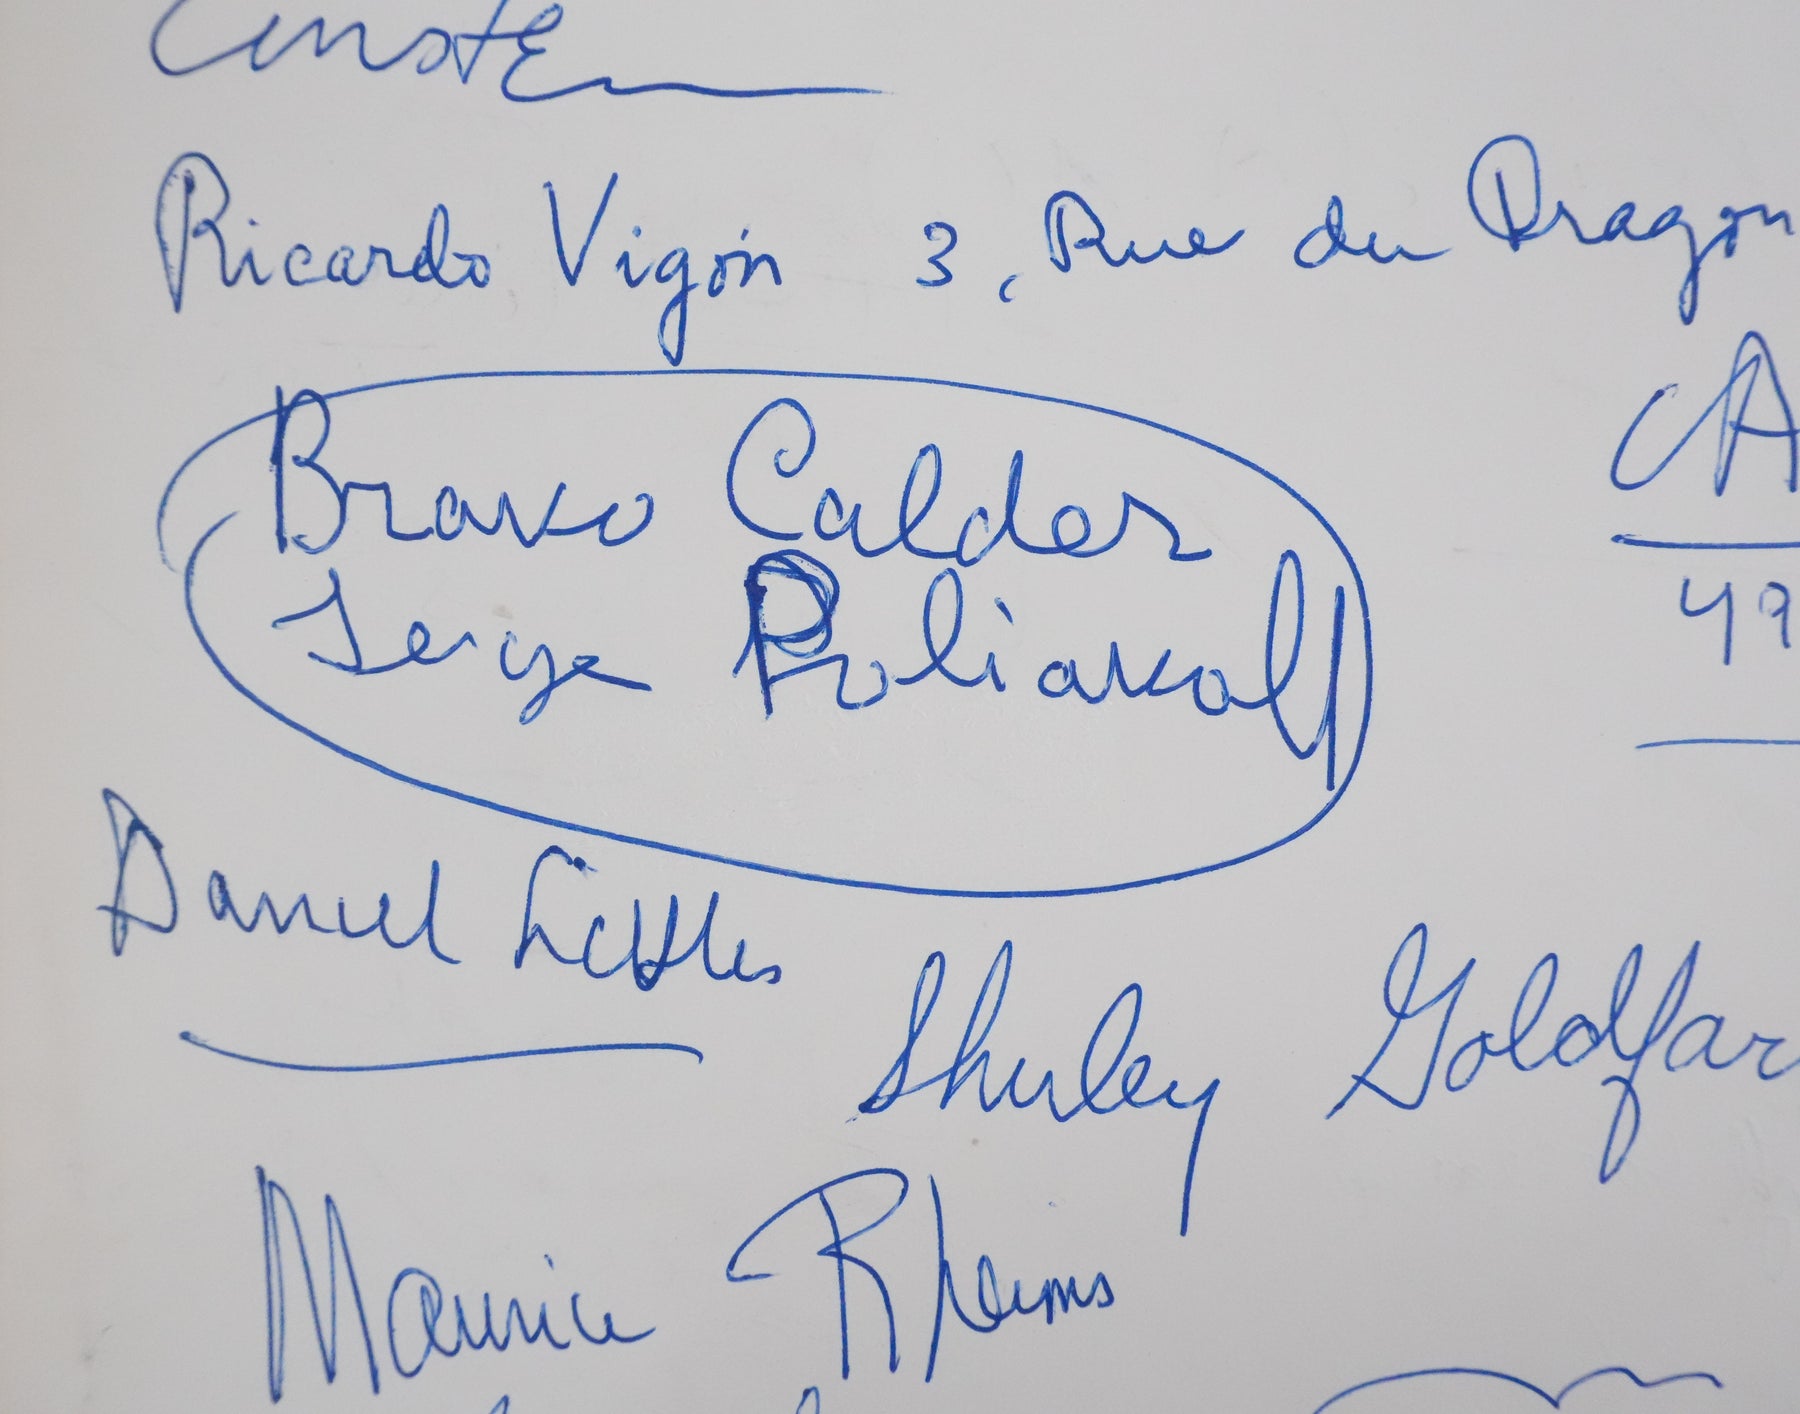 Ricardo Vigón 3, Rue du Dragon
Bravo Calder
Serge Poliakoff
49
Daniel
Shirley Goldfar
Maurice Rheims